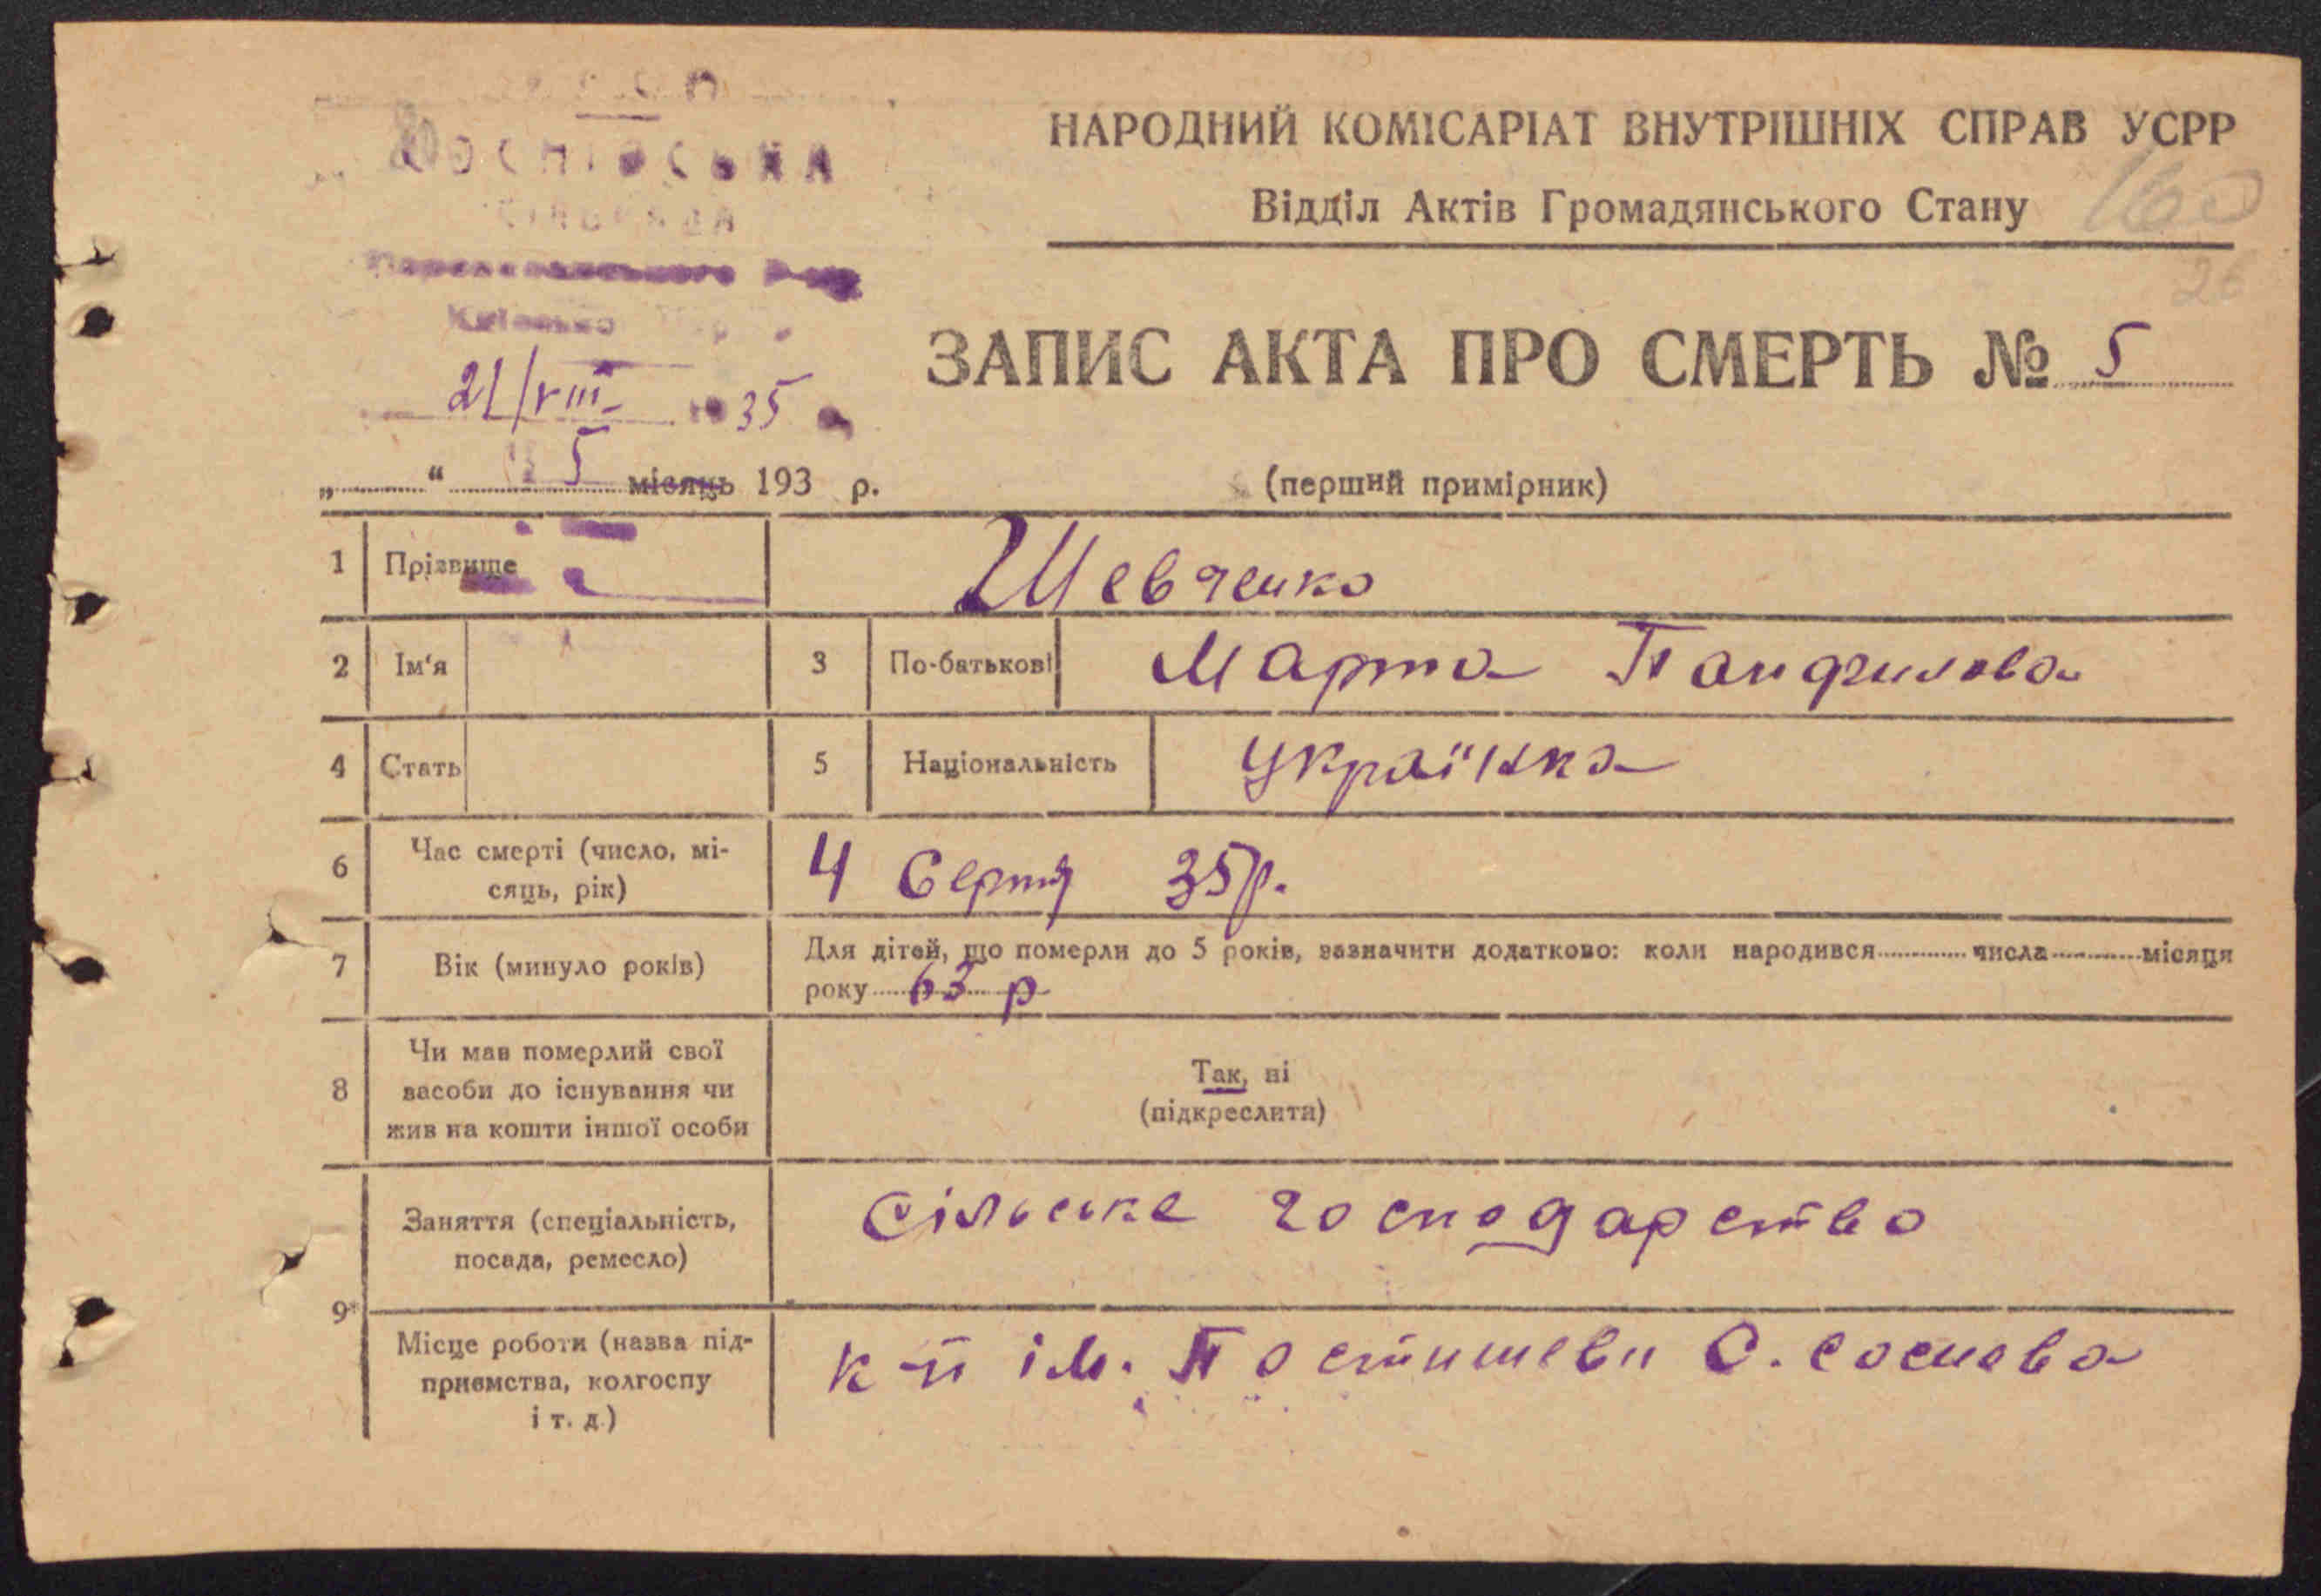 НАРОДНИЙ КОМІСАРІАТ ВНУТРІШНІХ СПРАВ УСРР
Відділ Актів Громадянського Стану
160
26
ЗАПИС АКТА ПРО СМЕРТЬ № 5
21/VIII 1935
„ “ 5 місяць 193 р.
(перший примірник)
1 Прізвище Шевченко
2 Ім'я 3 По-батькові Марта Панфилова
4 Стать 5 Національність Українка
6 Час смерті (число, місяць, рік) 4 Серпня 35р.
7 Вік (минуло років) Для дітей, що померли до 5 років, зазначити додатково: коли народився числа місяця
року 63 р
8 Чи мав померлий свої
засоби до існування чи
жив на кошти іншої особи
Так, ні
(підкреслити)
9* Заняття (спеціальність,
посада, ремесло)
сільське господарство
Місце роботи (назва під-
приємства, колгоспу
і т. д.)
к-п ім. Постишева С. Соснова